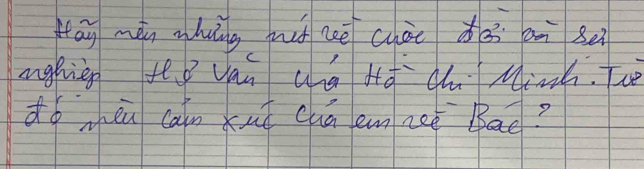 Hãy nêu những nét về cuộc đời và sự
nghiệp thơ văn của Hồ Chí Minh. Từ
đó nêu cảm xúc của em về Bác?